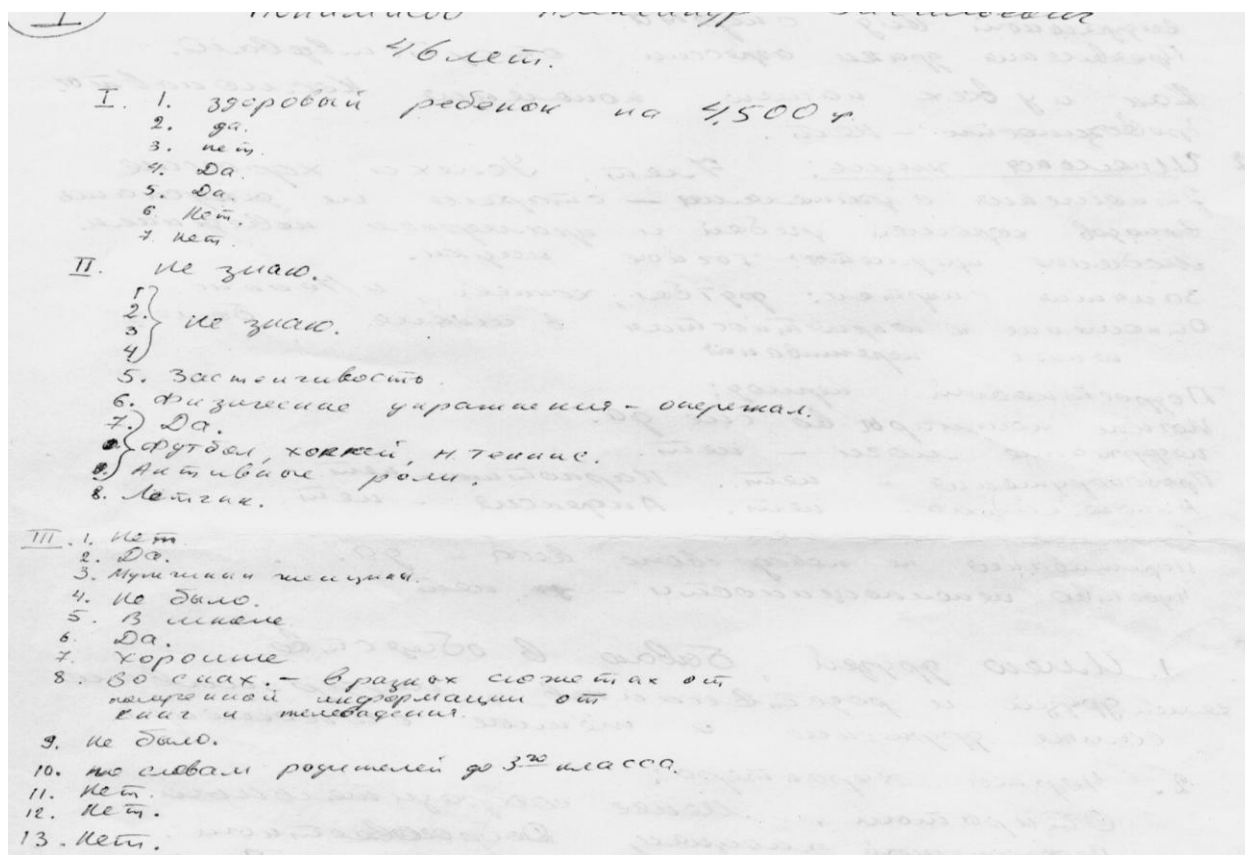 I
Александр Васильевич
46 лет.
I. 1. здоровый ребенок на 4,500 г
2. да.
3. нет.
4. Да
5. Да
6. Нет.
7. Нет.
II. Не знаю.
1
2.
3 не знаю.
4
5. Застенчивость
6. Физические упражнения - опережал.
7.) Да.
Футбол, хоккей, н. теннис.
9. Активные роли.
8. Летчик.
III. 1. Нет
2. Да.
3. женщины.
4. Не было.
5. В школе
6. Да.
7. хорошие
8. Во снах. - в разных сюжетах от
полученной информации от
книг и телевидения.
9. Не было.
10. по словам родителей до 3го класса
11. Нет.
12. Нет.
13. Нет.